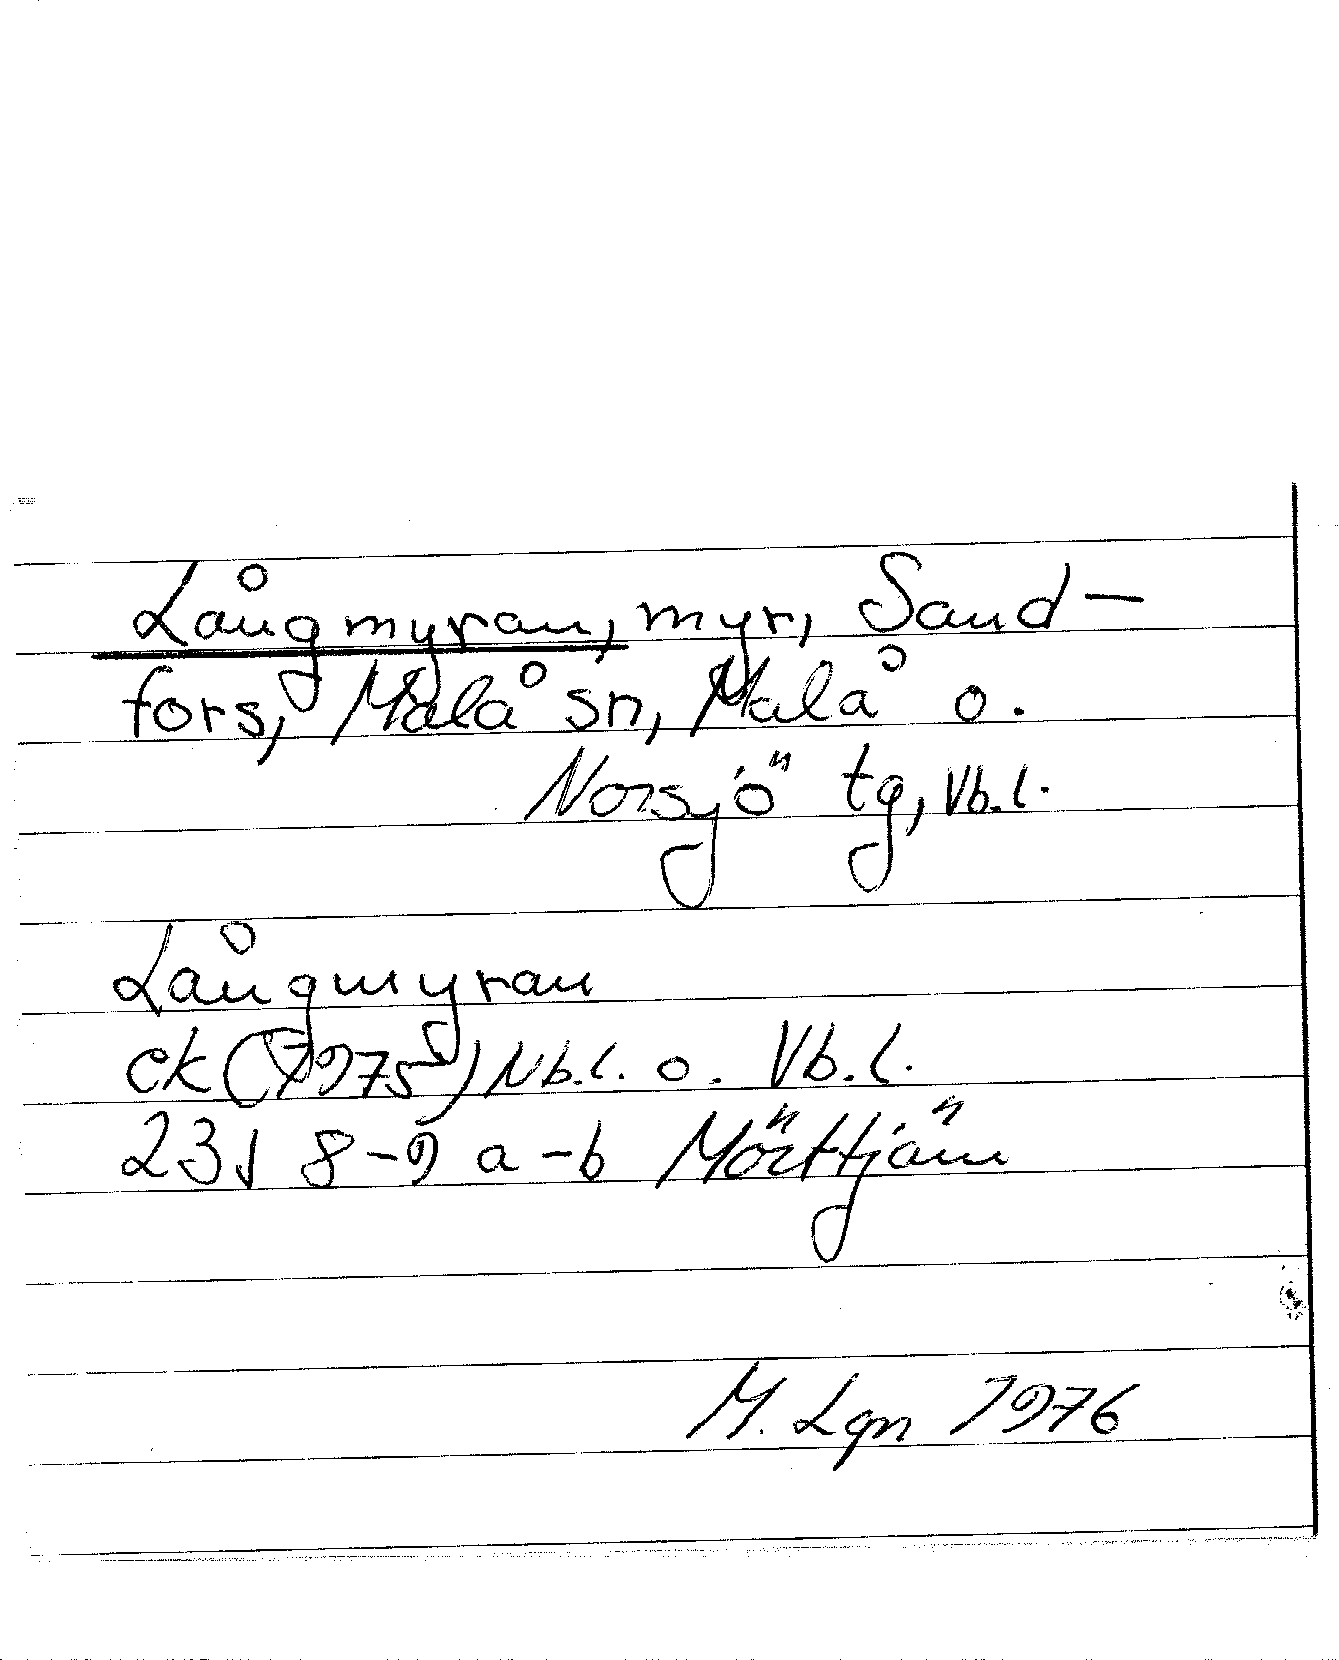 Långmyran, myr, Sand-
fors, Malå sn, Malå o.
Norsjö tg, Vb.l.
Långmyran
ek (1975) Nb.l. o. Vb.l.
23J 8-9 a-b Mörttjärn
M. Lgn 1976